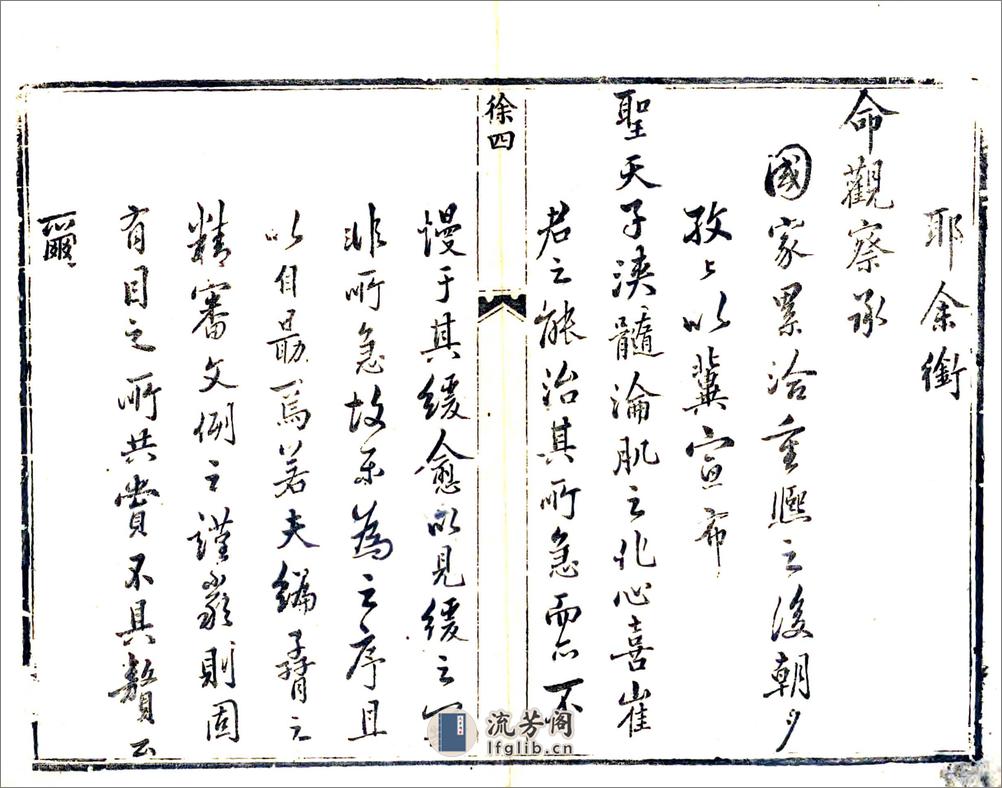 耶余銜
命觀察承
國家累洽重熙之後朝夕
孜孜以冀宣布
聖天子浹髓淪肌之化心喜崔
君之能治其所急而亦不
徐四
慢于其緩愈以見緩之
非所急故樂為之序且
以自勗焉若夫編脊之
精審文例之謹嚴則固
有目之所共賞不具贅云
爾
流芳閣
lfglib.cn